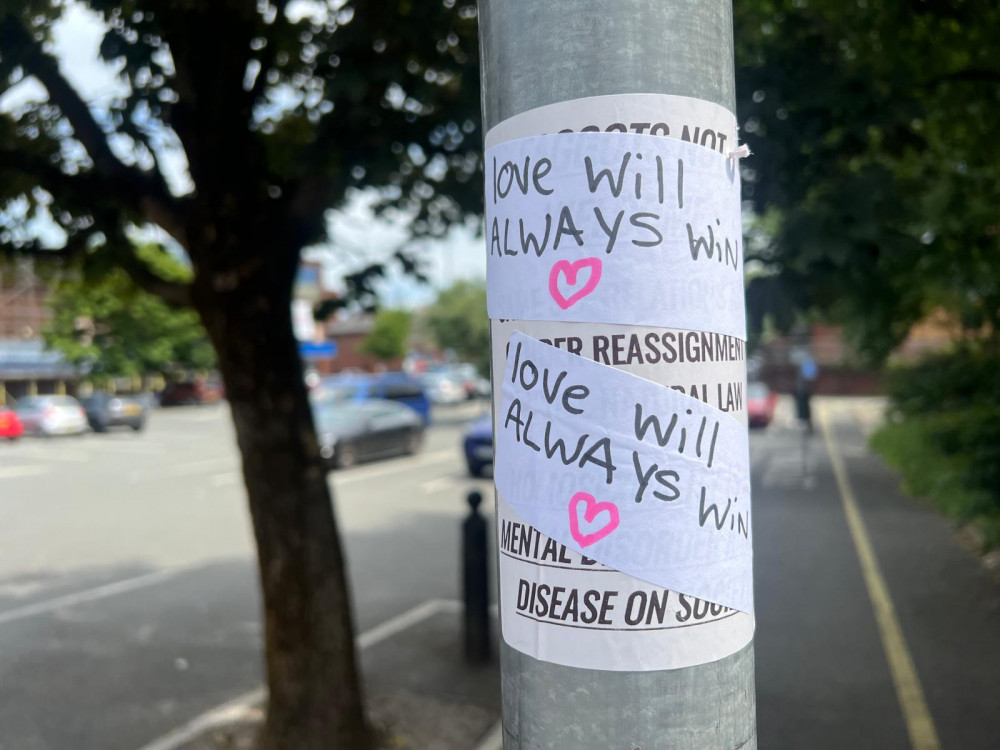 NOT
love will
ALWAYS WiN
REASSIGNMENT
LAW
love will
ALWAYS WiN
MENTAL
DISEASE ON